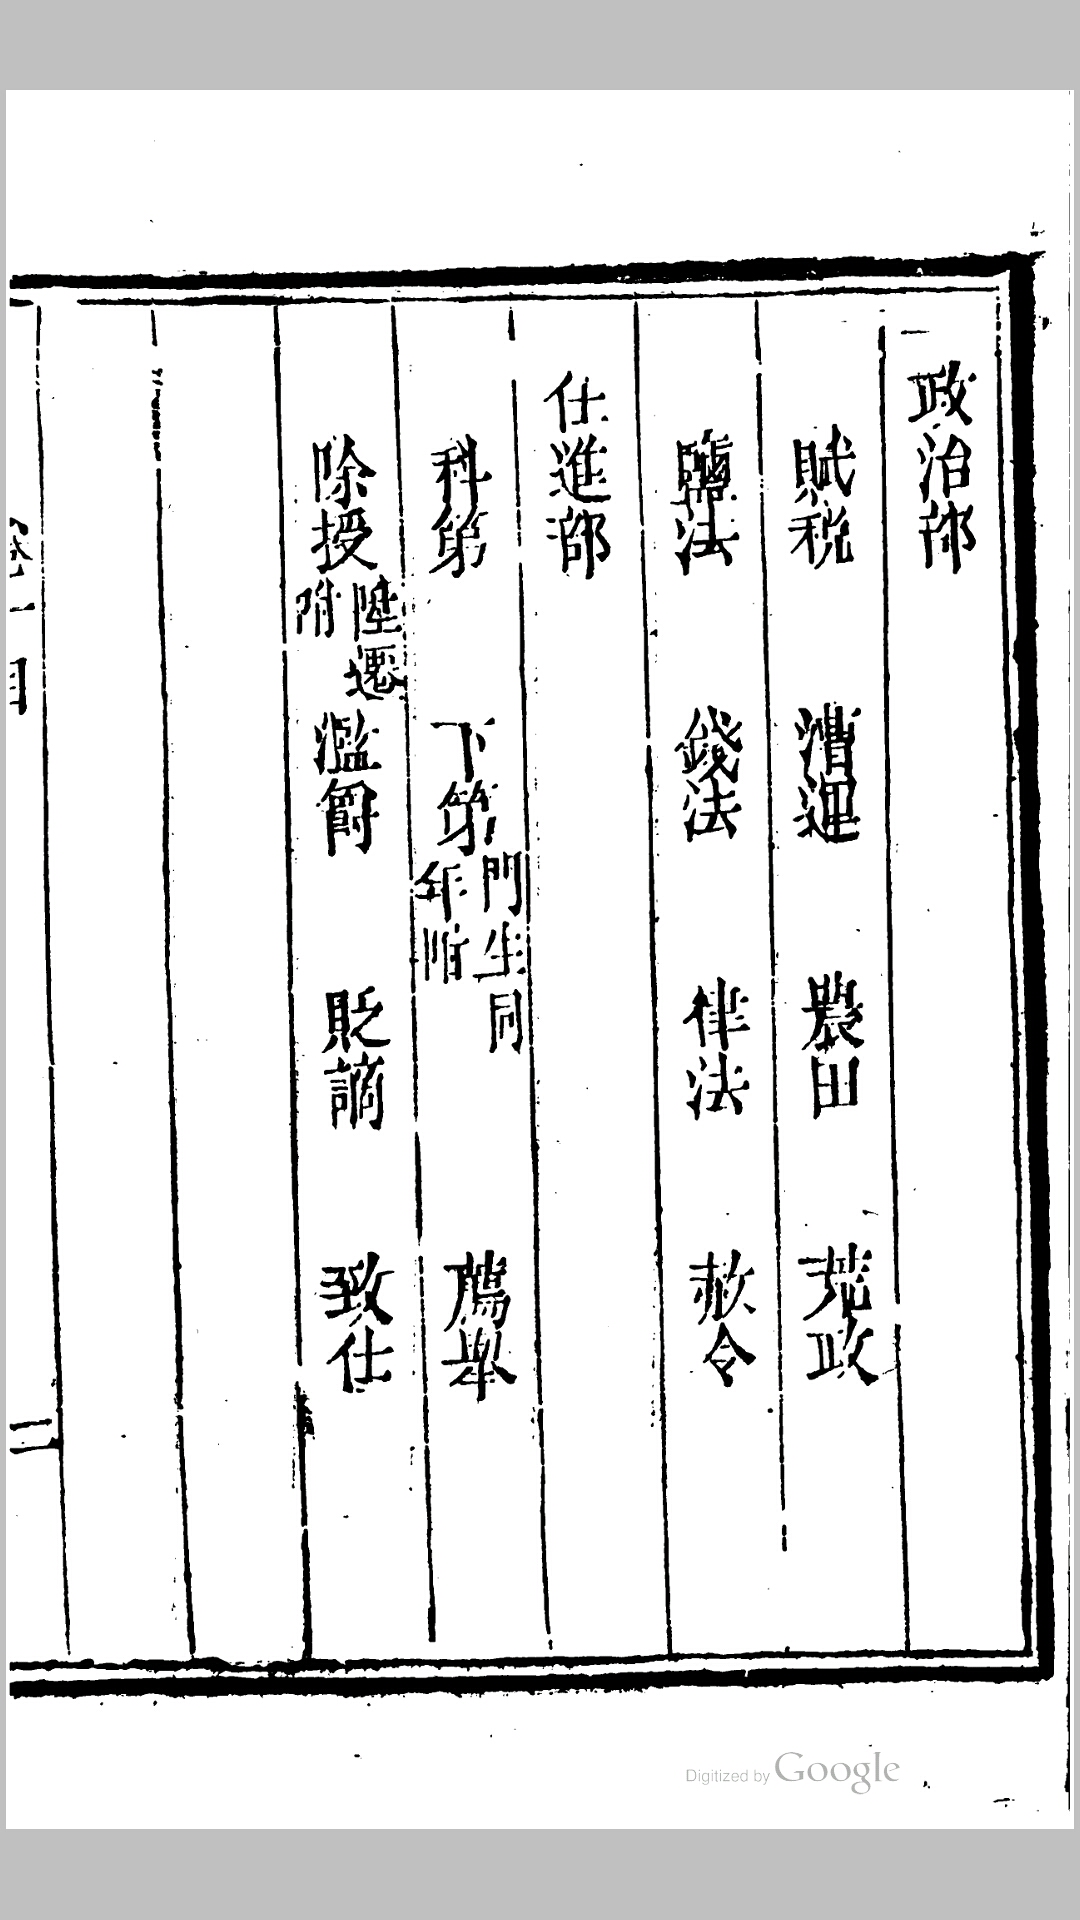 政治部
賦税 漕運 農田 荒政
鹽法 錢法 律法 赦令
仕進部
科第 下第 門生同年附 薦舉
除授 陞遷附 濫爵 貶謫 致仕
二
Digitized by Google